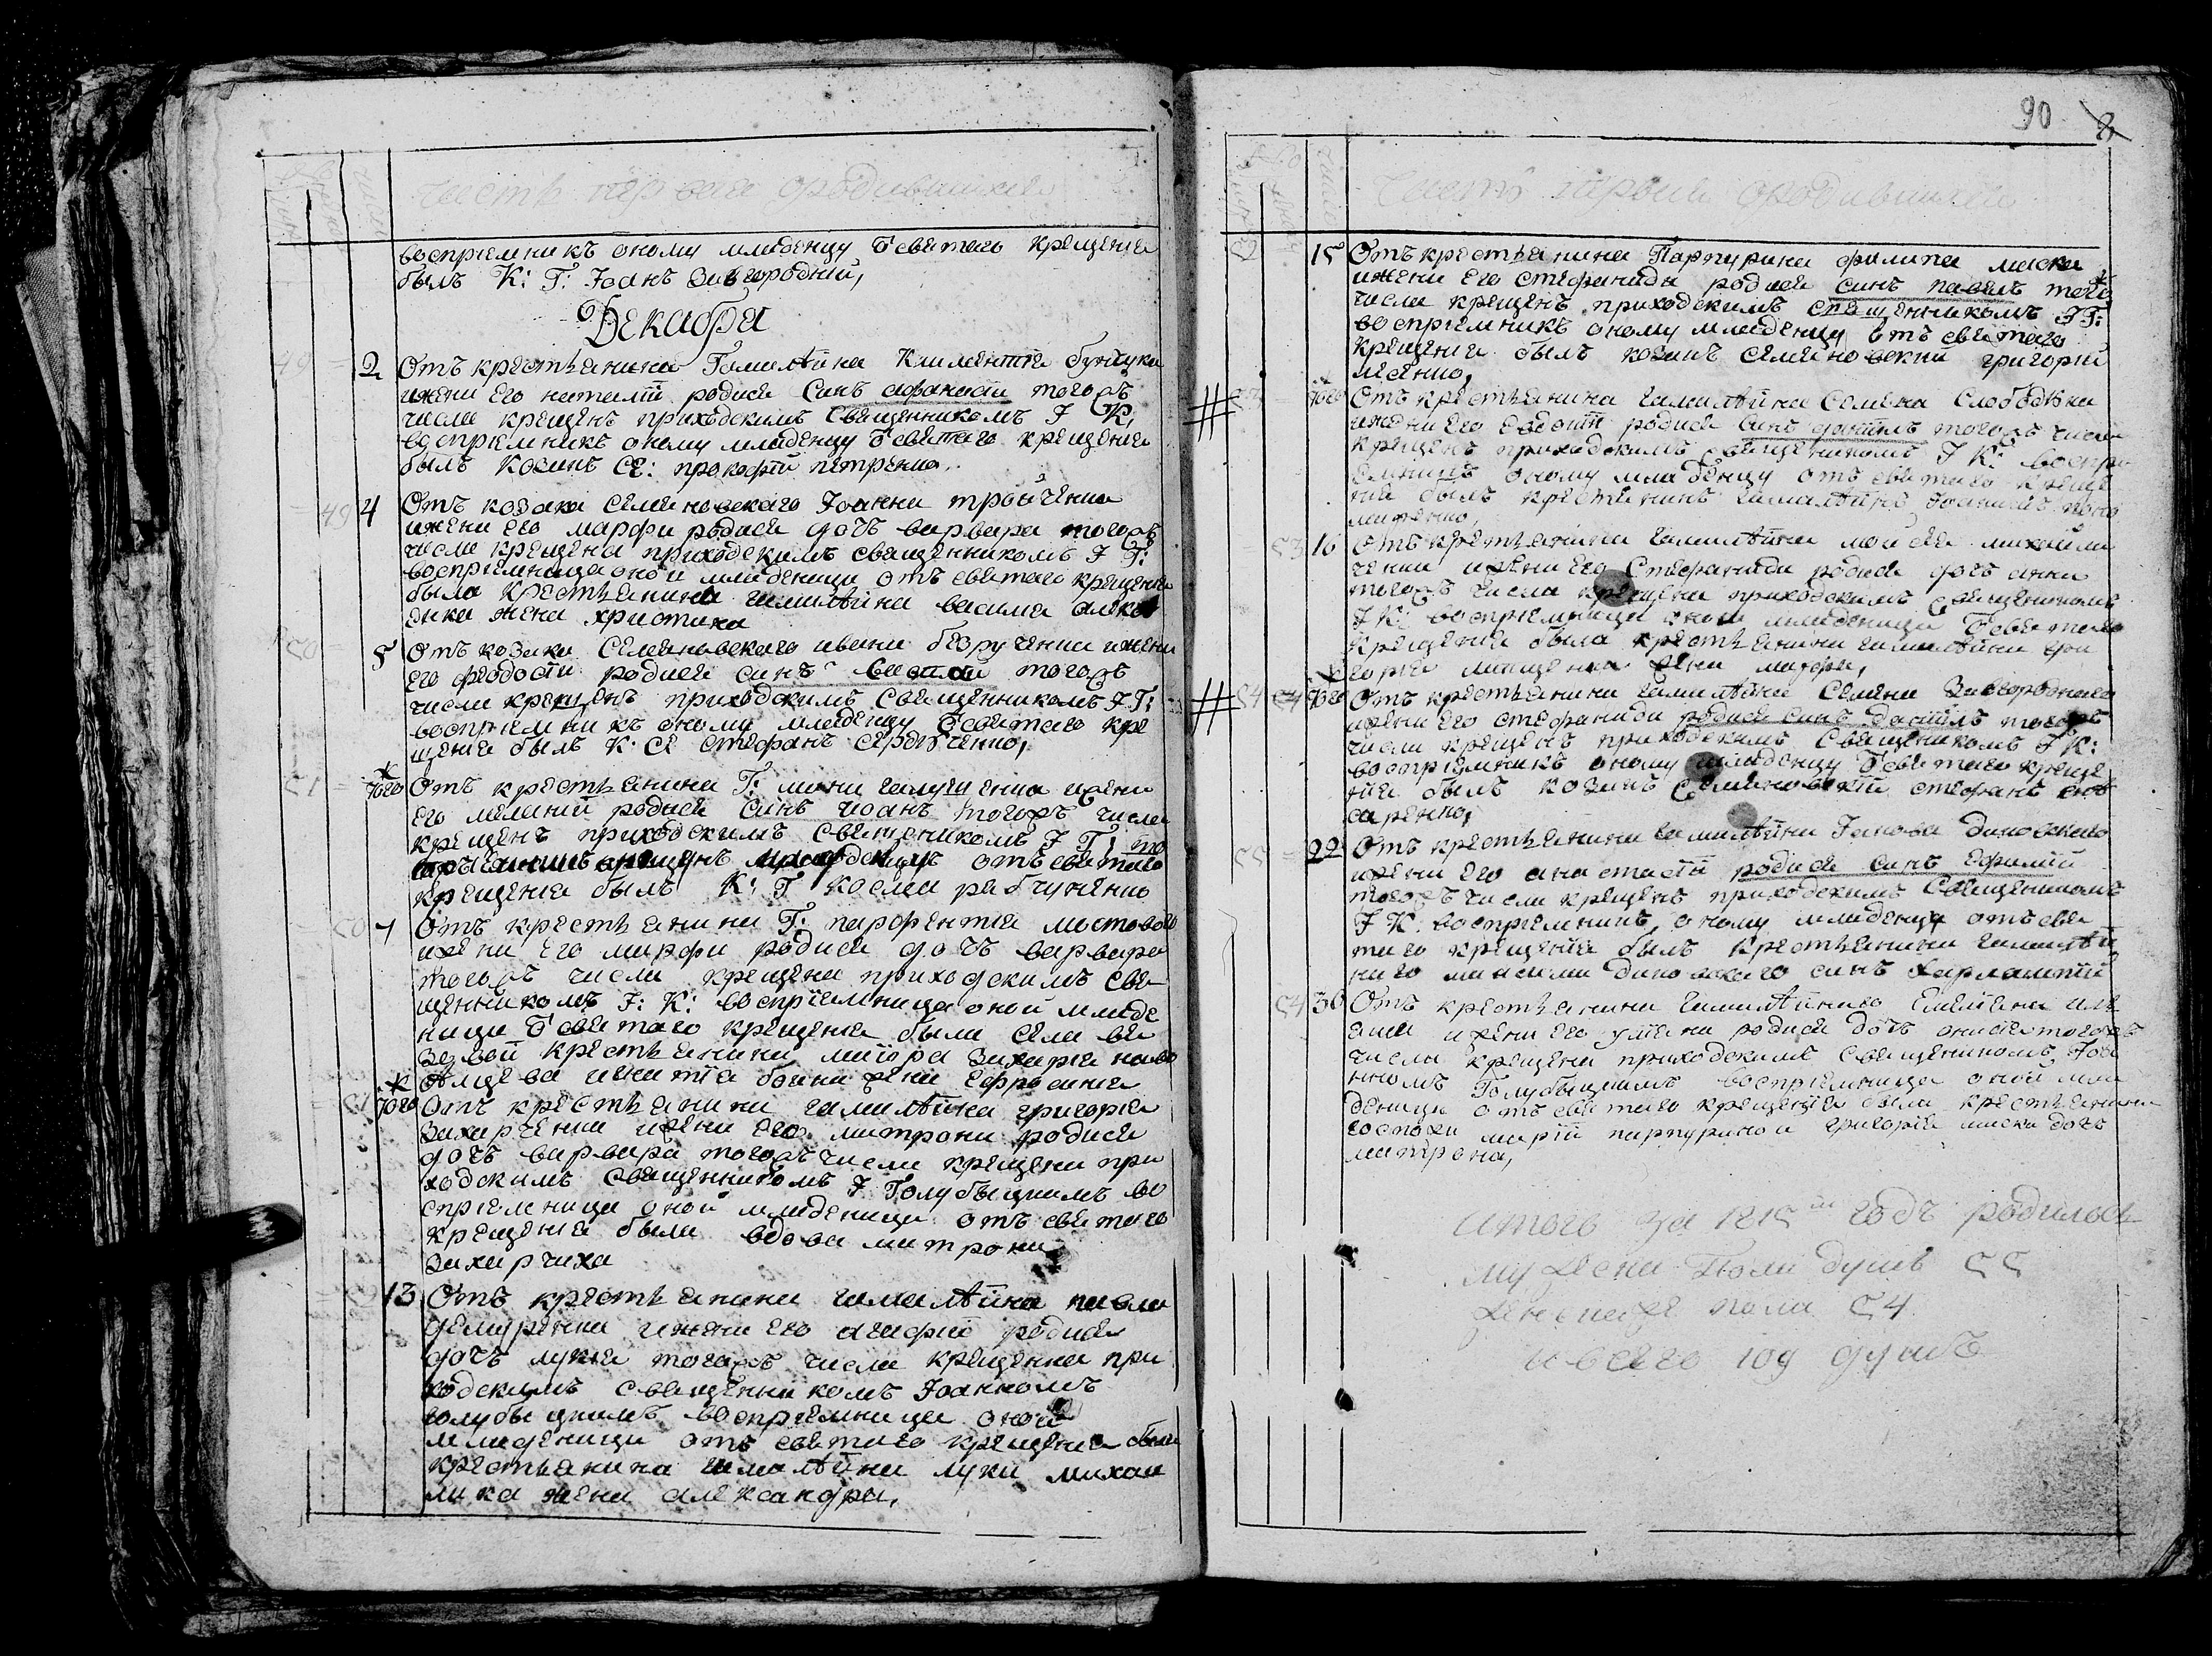 Часть первая о родившихся
воспріемникъ оному младенцу Ѿ святаго крещенія
былъ К: Г: Іоанъ Завгородній,
Декабря
49 2 Отъ крестьянина Гамалѣйна Климентія бунчука
и жени его наталіи родися синъ афанасій тогожъ
числа крещенъ приходскимъ священникомъ І К,
воспріемникъ оному младенцу Ѿ святаго крещенія
былъ Козакъ Се: прокофій петренко.
49 4 Отъ козака семеновскаго Іоанна тройченка
и жени его марфи родися дочъ варвара тогожъ
числа крещена приходскимъ священникомъ І Г:
воспріемница оной младеници отъ святаго крещенія
была крестьянина гамалѣйна василія
жена христина
50 5 Отъ козака Семеновскаго ивана безрученка и жени
его феодосіи родися синъ василій тогожъ
числа крещенъ приходскимъ священникомъ І Г:
воспріемникъ оному младенцу Ѿ святаго кре
щенія былъ К Се стефанъ сердюченко,
51 того Отъ крестьянина Г: мини галущенка и жени
его меланіи родися синъ иоанъ тогожъ числа
крещенъ приходскимъ священникомъ І Г,
отъ святаго
крещенія былъ К: Г косма рябчуненко
50 7 Отъ крестьянина Г: парфентія мостоваго
и жени его марфи родися дочъ варвара
тогожъ числа крещена приходскимъ свя
щенникомъ І: К: воспріемница оной младе
ници Ѿ святаго крещенія была села ве
зевой крестьянина маіора захарія
жени ефросинія
51 того Отъ крестьянина гамалѣйна григорія
захарченка и жени его матрони родися
дочъ варвара тогожъ числа крещена при
ходскимъ священникомъ І Голубѣцкимъ во
спріемница оной младеници отъ святаго
крещенія была вдова матрона
захарчиха
13 Отъ крестьянина гамалѣйна павла
демуренка и жени его агафіи родися
дочъ лукія тогожъ числа крещенна при
ходскимъ священникомъ Іоанномъ
голубѣцкимъ воспріемница оной
младеници отъ святаго крещенія была
крестьянина гамалѣйна луки михай
лика жена александра,
90
Часть первая о родившихся
52 15 Отъ крестьянина Парпурина филипа маска
и жени его стефаниди родися синъ павелъ тогожъ
числа крещенъ приходскимъ священникомъ І Г:
воспріемникъ оному младенцу отъ святаго
крещенія былъ козакъ семеновскій григорій
53 того Отъ крестьянина гамалѣйна Семена Слободяна
и жени его Евдокіи родися синъ даніилъ тогожъ числа
крещенъ приходскимъ священникомъ І К: воспрі
емникъ оному младенцу отъ святаго креще
нія былъ крестьянинъ гамалѣйнъ
53 16 Отъ крестьянина гамалѣйна моисея михайли
ченка и жени его Стефаниди родися дочъ анна
тогожъ числа крещена приходскимъ священникомъ
І К: воспріемница оной младеници Ѿ святаго
крещенія была крестьянина гамалѣйна гри
горія мащенка жена марфа,
54 того Отъ крестьянина гамалѣйна Семена Завгороднаго
и жени его стефаниди родися синъ даніилъ тогожъ
числа крещенъ приходскимъ священникомъ І К:
воспріемникъ оному младенцу Ѿ святаго креще
нія былъ козакъ семеновскій стефанъ слю
саренко,
55 22 Отъ крестьянина гамалѣйна Іакова Диновскаго
и жени его анастасіи родися синъ ефимій
тогожъ числа крещенъ приходскимъ священникомъ
І К. воспріемникъ оному младенцу отъ свя
таго крещенія былъ крестьянина гамалѣй
наго максима диновскаго синъ харлампій
54 30 Отъ крестьянина гамалѣйнаго Емеліана
и жени его уляни родися дочъ анисія тогожъ
числа крещена приходскимъ священникомъ Іоа
нномъ Голубѣцкимъ воспріемница оной мла
деници отъ святаго крещенія была крестьянина
госпожи маріи парпуриной григорія маска дочъ
матрона,
итого за 1815й годъ родилось
мужеска пола душъ 55
женска пола 54
и всего 109 душъ